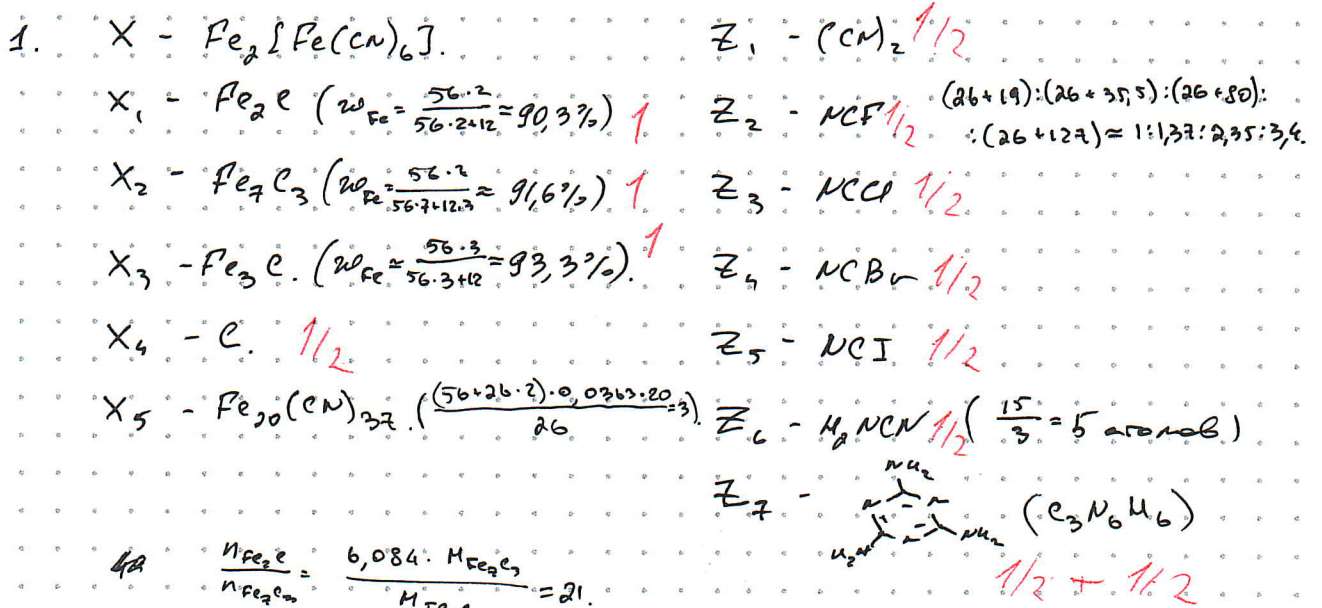 1. X - Fe₂[Fe(CN)₆].
X₁ - Fe₂C (w_Fe = 56·2 / 56·2+12 ≈ 90,3%) 1
X₂ - Fe₇C₃ (w_Fe = 56·2 / 56·7+12·3 ≈ 91,6%) 1
X₃ - Fe₃C. (w_Fe = 56·3 / 56·3+12 = 93,3%). 1
X₄ - C. 1/2
X₅ - Fe₂₀(CN)₃₇. ((56+26·2)·0,0363·20 / 26 = 3).
n_Fe₂C / n_Fe₇C₃ = 6,084 · M_Fe₇C₃ / = 21.
Z₁ - (CN)₂ 1/2
Z₂ - NCF 1/2 (26+19):(26+35,5):(26+80):
:(26+127) ≈ 1:1,37:2,35:3,4.
Z₃ - NCCl 1/2
Z₄ - NCBr 1/2
Z₅ - NCI 1/2
Z₆ - H₂NCN 1/2 (15/3 = 5 атомов)
NH₂
Z₇ - N N (C₃N₆H₆)
H₂N N NH₂
1/2 + 1/2